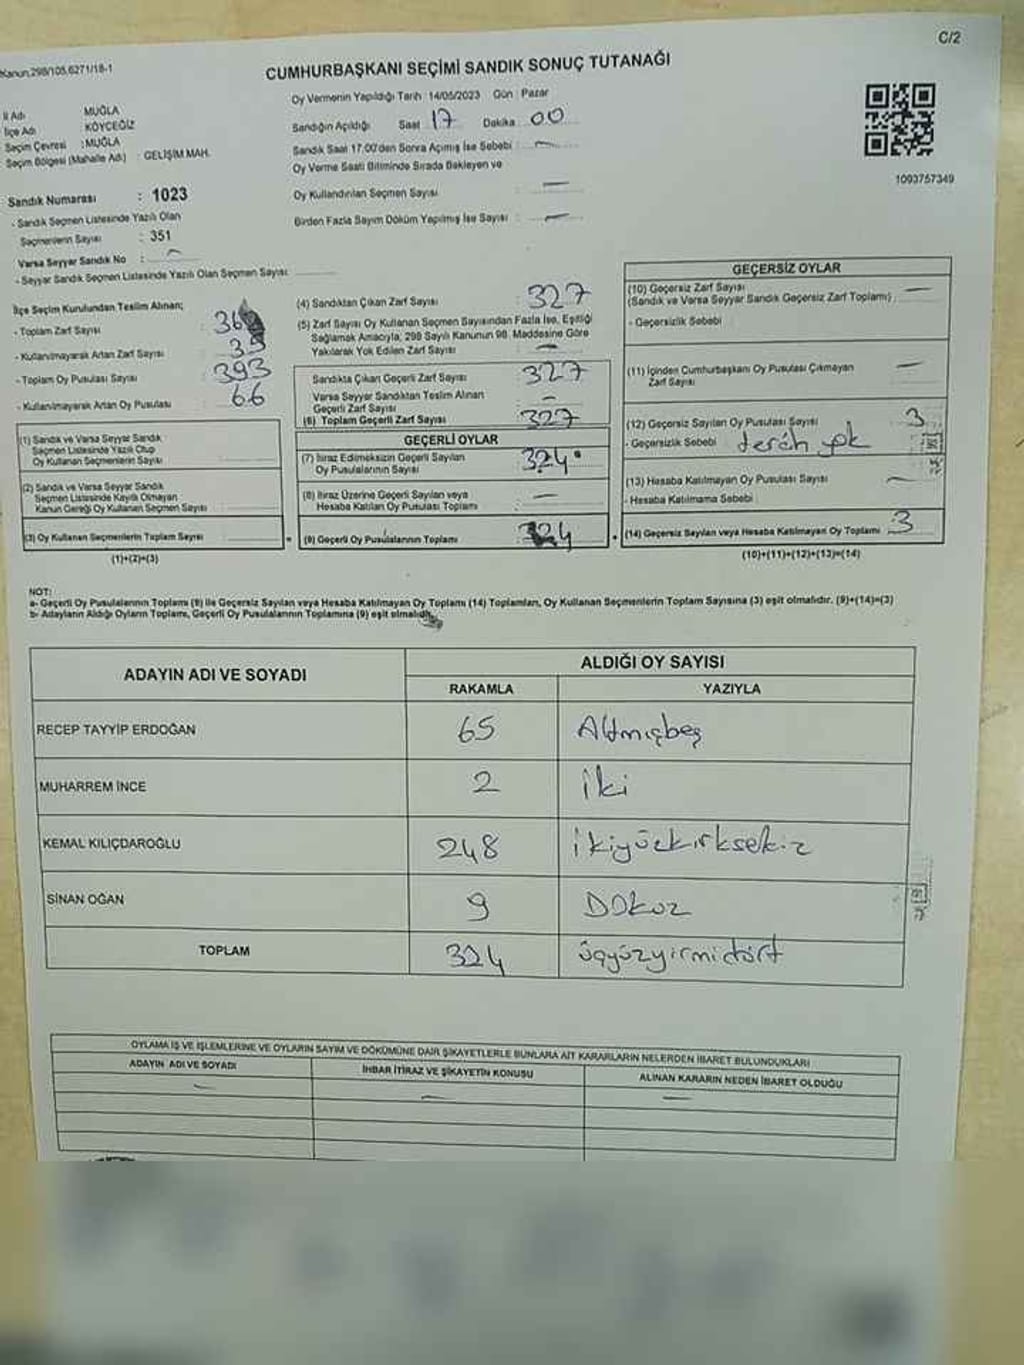 C/2
Kanun,298/105,6271/18-1
CUMHURBAŞKANI SEÇİMİ SANDIK SONUÇ TUTANAĞI
İl Adı MUĞLA
İlçe Adı KÖYCEĞİZ
Seçim Çevresi : MUĞLA
Seçim Bölgesi (Mahalle Adı) : GELİŞİM MAH.
Sandık Numarası : 1023
- Sandık Seçmen Listesinde Yazılı Olan
Seçmenlerin Sayısı : 351
Varsa Seyyar Sandık No :
- Seyyar Sandık Seçmen Listesinde Yazılı Olan Seçmen Sayısı:
Oy Vermenin Yapıldığı Tarih : 14/05/2023 Gün : Pazar
Sandığın Açıldığı Saat 17 Dakika 00
Sandık Saat 17.00'den Sonra Açımış İse Sebebi : —
Oy Verme Saati Bitiminde Sırada Bekleyen ve
Oy Kullandırılan Seçmen Sayısı : —
Birden Fazla Sayım Döküm Yapılmış İse Sayısı : —
1093757349
İlçe Seçim Kurulundan Teslim Alınan;
- Toplam Zarf Sayısı
- Kullanılmayarak Artan Zarf Sayısı
- Toplam Oy Pusulası Sayısı : 393
- Kullanılmayarak Artan Oy Pusulası : 66
(1) Sandık ve Varsa Seyyar Sandık
Seçmen Listesinde Yazılı Olup
Oy Kullanan Seçmenlerin Sayısı
(2) Sandık ve Varsa Seyyar Sandık
Seçmen Listesinde Kayıtlı Olmayan
Kanun Gereği Oy Kullanan Seçmen Sayısı
(3) Oy Kullanan Seçmenlerin Toplam Sayısı
(1)+(2)=(3)
(4) Sandıktan Çıkan Zarf Sayısı : 327
(5) Zarf Sayısı Oy Kullanan Seçmen Sayısından Fazla İse, Eşitliği
Sağlamak Amacıyla; 298 Sayılı Kanunun 98. Maddesine Göre
Yakılarak Yok Edilen Zarf Sayısı : —
Sandıkta Çıkan Geçerli Zarf Sayısı : 327
Varsa Seyyar Sandıktan Teslim Alınan
Geçerli Zarf Sayısı : —
(6) Toplam Geçerli Zarf Sayısı : 327
GEÇERLİ OYLAR
(7) İtiraz Edilmeksizin Geçerli Sayılan
Oy Pusulalarının Sayısı : 324
(8) İtiraz Üzerine Geçerli Sayılan veya
Hesaba Katılan Oy Pusulası Toplamı : —
(9) Geçerli Oy Pusulalarının Toplamı : 324
GEÇERSİZ OYLAR
(10) Geçersiz Zarf Sayısı —
(Sandık ve Varsa Seyyar Sandık Geçersiz Zarf Toplamı)
- Geçersizlik Sebebi
(11) İçinden Cumhurbaşkanı Oy Pusulası Çıkmayan
Zarf Sayısı —
(12) Geçersiz Sayılan Oy Pusulası Sayısı : 3
- Geçersizlik Sebebi
(13) Hesaba Katılmayan Oy Pusulası Sayısı —
- Hesaba Katılmama Sebebi
(14) Geçersiz Sayılan veya Hesaba Katılmayan Oy Toplamı : 3
(10)+(11)+(12)+(13)=(14)
NOT:
a- Geçerli Oy Pusulalarının Toplamı (9) ile Geçersiz Sayılan veya Hesaba Katılmayan Oy Toplamı (14) Toplamları, Oy Kullanan Seçmenlerin Toplam Sayısına (3) eşit olmalıdır. (9)+(14)=(3)
b- Adayların Aldığı Oyların Toplamı, Geçerli Oy Pusulalarının Toplamına (9) eşit olmalıdır.
ADAYIN ADI VE SOYADI
ALDIĞI OY SAYISI
RAKAMLA YAZIYLA
RECEP TAYYİP ERDOĞAN 65 Altmışbeş
MUHARREM İNCE 2 iki
KEMAL KILIÇDAROĞLU 248 ikiyüzkırksekiz
SİNAN OĞAN 9 Dokuz
TOPLAM 324 üçyüzyirmidört
OYLAMA İŞ VE İŞLEMLERİNE VE OYLARIN SAYIM VE DÖKÜMÜNE DAİR ŞİKAYETLERLE BUNLARA AİT KARARLARIN NELERDEN İBARET BULUNDUKLARI
ADAYIN ADI VE SOYADI İHBAR İTİRAZ VE ŞİKAYETİN KONUSU ALINAN KARARIN NEDEN İBARET OLDUĞU
— — —